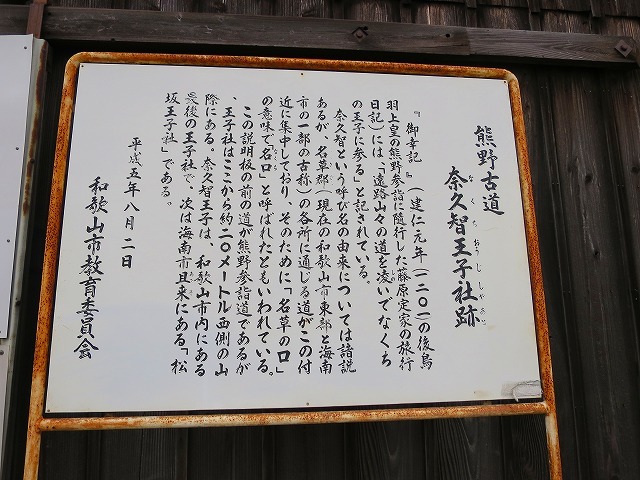 熊野古道
奈久智王子社跡
なくちおうじしゃあと
『御幸記』(建仁元年(一二〇一)の後鳥
羽上皇の熊野参詣に随行した藤原定家の旅行
日記)には「遠路山々の道を凌いでなくち
の王子に参る」と記されている。
奈久智という呼び名の由来については諸説
あるが、名草郡(現在の和歌山市東部と海南
市の一部の古称)の各所に通じる道がこの付
近に集中しており、そのために「名草の口」
の意味で名口」と呼ばれたともいわれている。
なくち
この説明板の前の道が熊野参詣道であるが
王子社はここから約二〇メートル西側の山
際にある。奈久智王子は、和歌山市内にある
最後の王子社で、次は海南市且来にある「松
坂王子社」である。
平成五年八月二日
和歌山市教育委員会